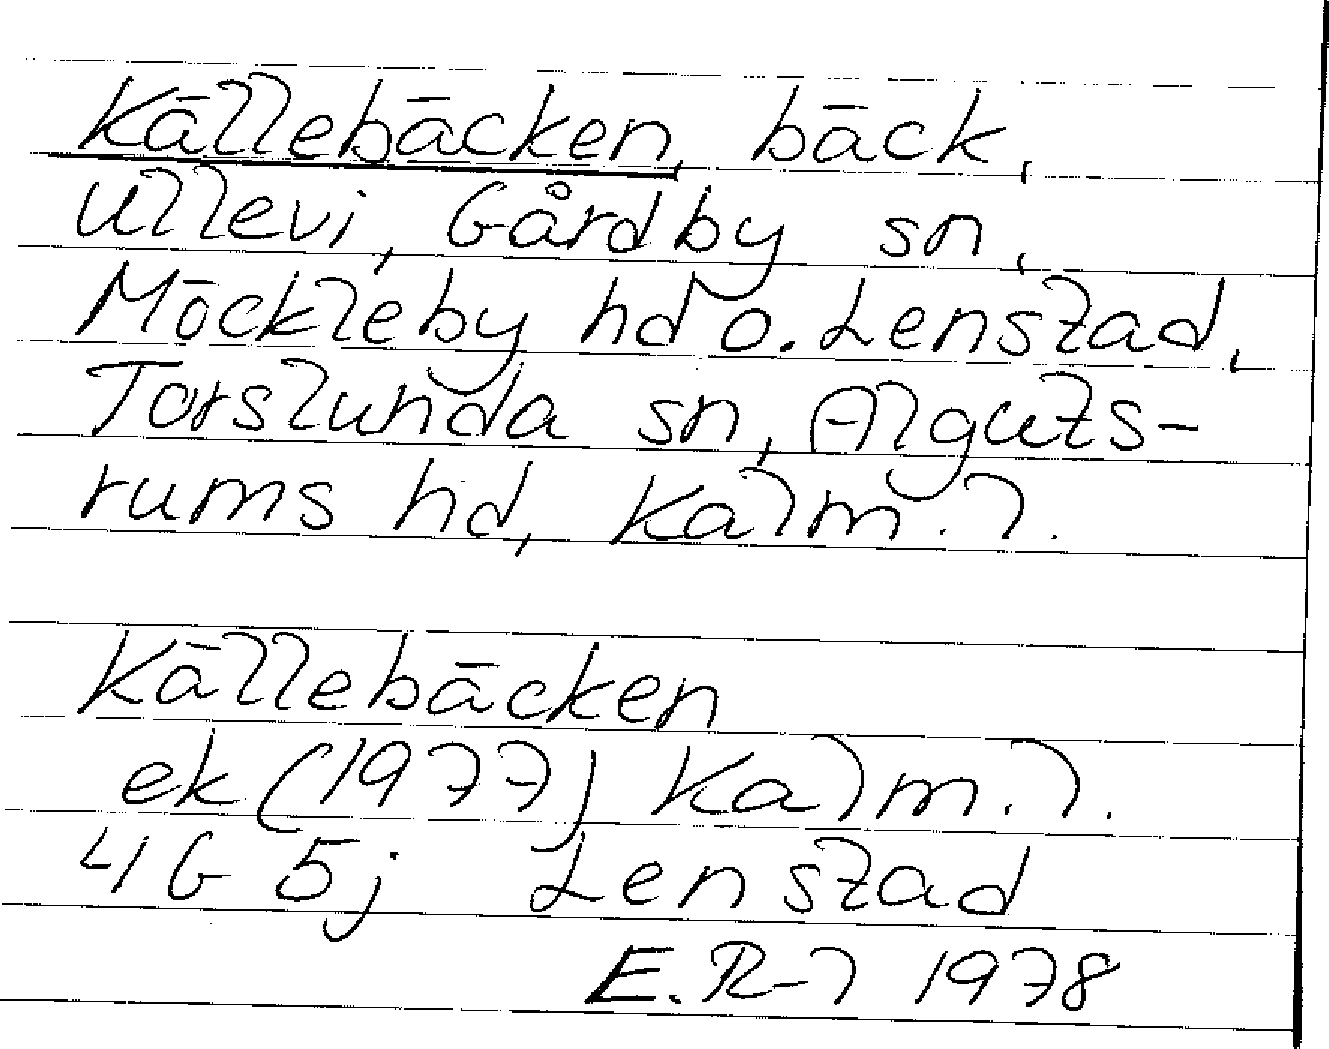 Källebäcken, bäck,
Ullevi, Gårdby sn,
Möckleby hd o. Lenstad,
Torslunda sn, Alguts-
rums hd, Kalm. l.
Källebäcken
ek (1977) Kalm. l.
4G 5j Lenstad
E. R-l 1978